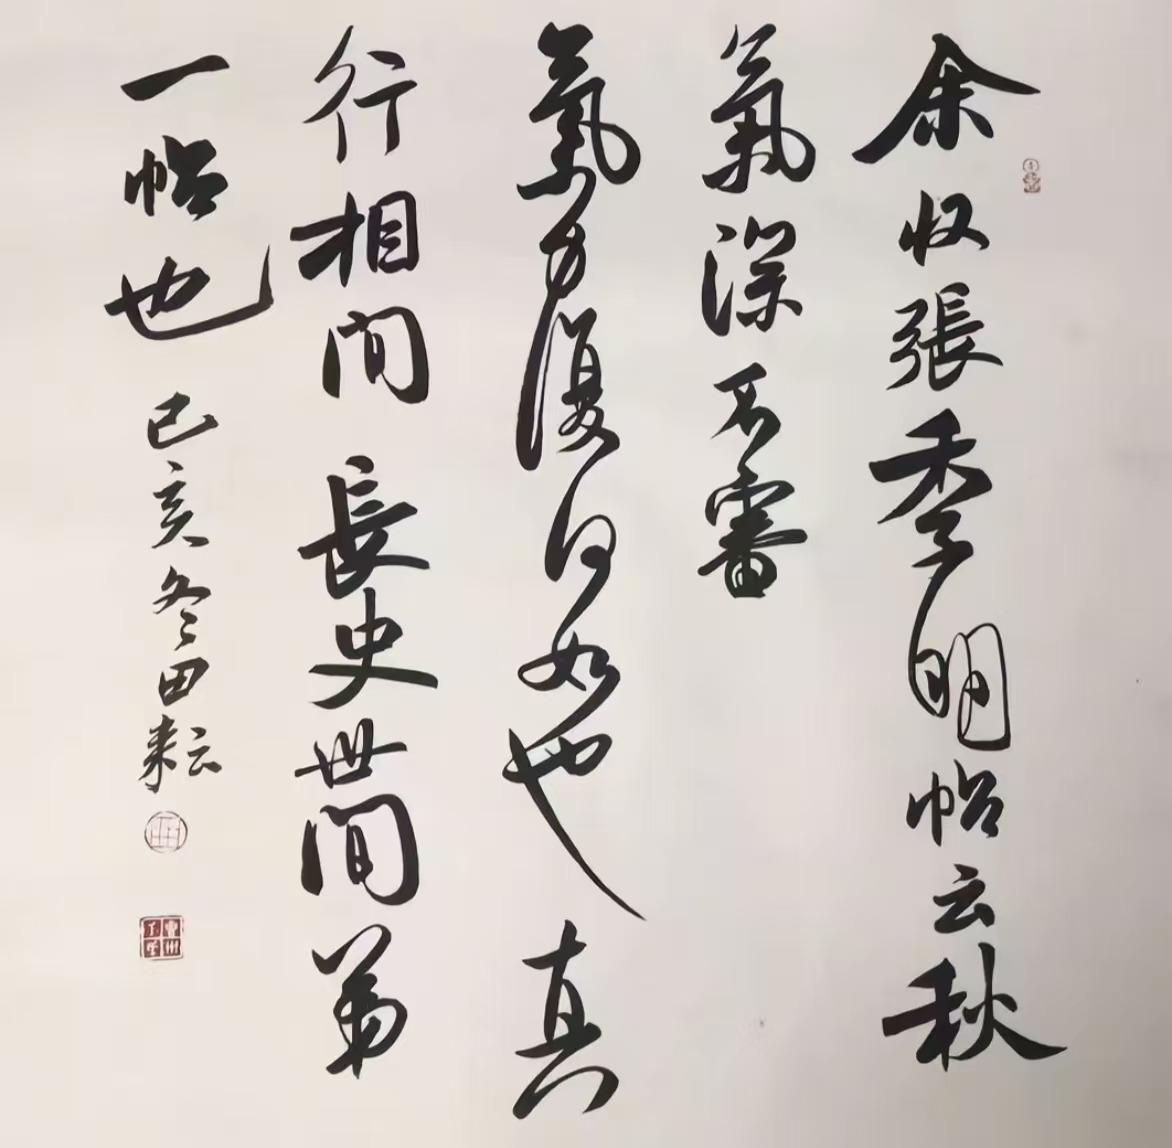 余收張季明帖云秋
氣深不審
氣力復何如也真
行相間長史世間第
一帖也
己亥冬田耘